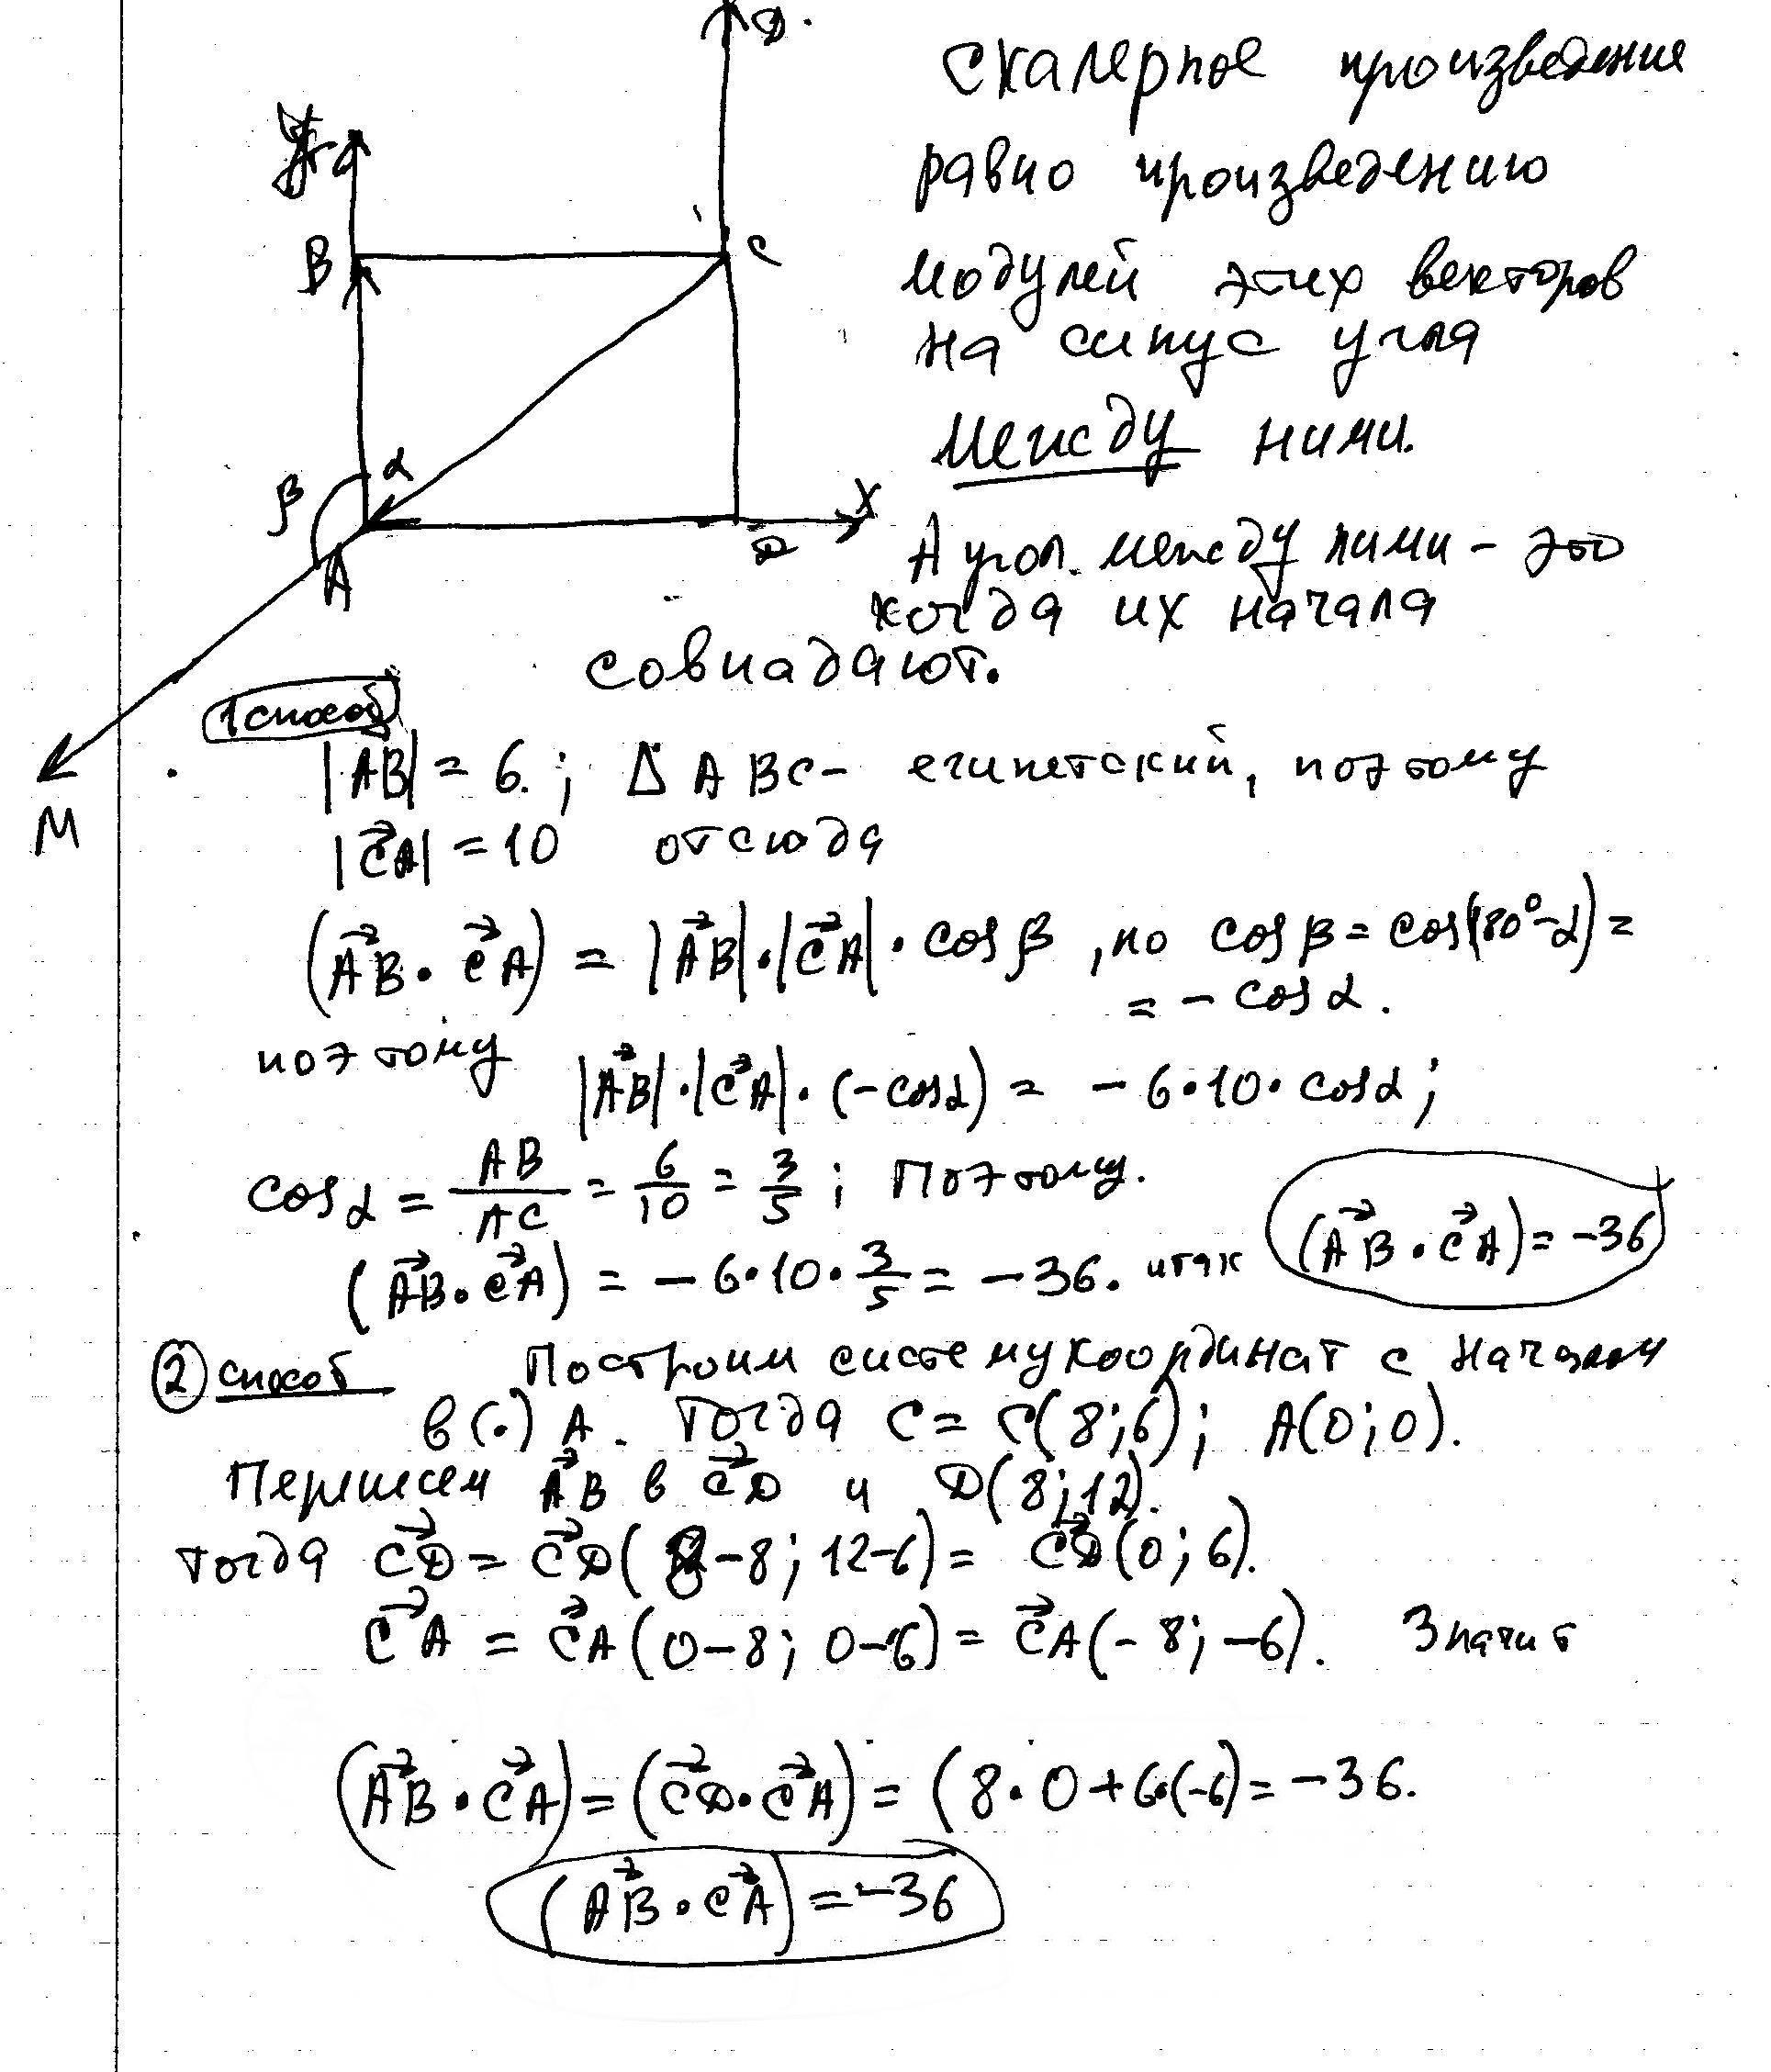 Скалерное произведение
равно произведению
модулей этих векторов
на синус угла
между ними.
А угол между ними - это
когда их начала
совпадают.
D.
y
B
C
β
α
X
A
D
M
1 способ
|AB| = 6. ; Δ ABC - египетский, поэтому
|CA| = 10 отсюда
(AB · CA) = |AB| · |CA| · cos β, но cos β = cos(180° - α) =
= - cos α.
поэтому
|AB| · |CA| · (-cos α) = - 6 · 10 · cos α ;
cos α = AB/AC = 6/10 = 3/5 ; Поэтому.
(AB · CA) = - 6 · 10 · 3/5 = - 36. итак (AB · CA) = -36
2 способ Построим систему координат с началом
в (·) A. Тогда C = C(8; 6); A(0; 0).
Перенесем AB в CD и D(8; 12).
тогда CD = CD(8 - 8; 12 - 6) = CD(0; 6).
CA = CA(0 - 8; 0 - 6) = CA(- 8; -6). Значит
(AB · CA) = (CD · CA) = (8 · 0 + 6·(-6) = -36.
(AB · CA) = -36